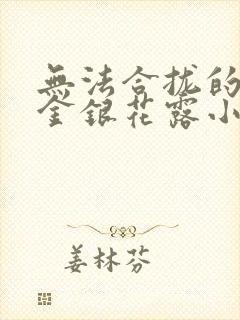 無法合拢的
金銀花露小
姜林芬